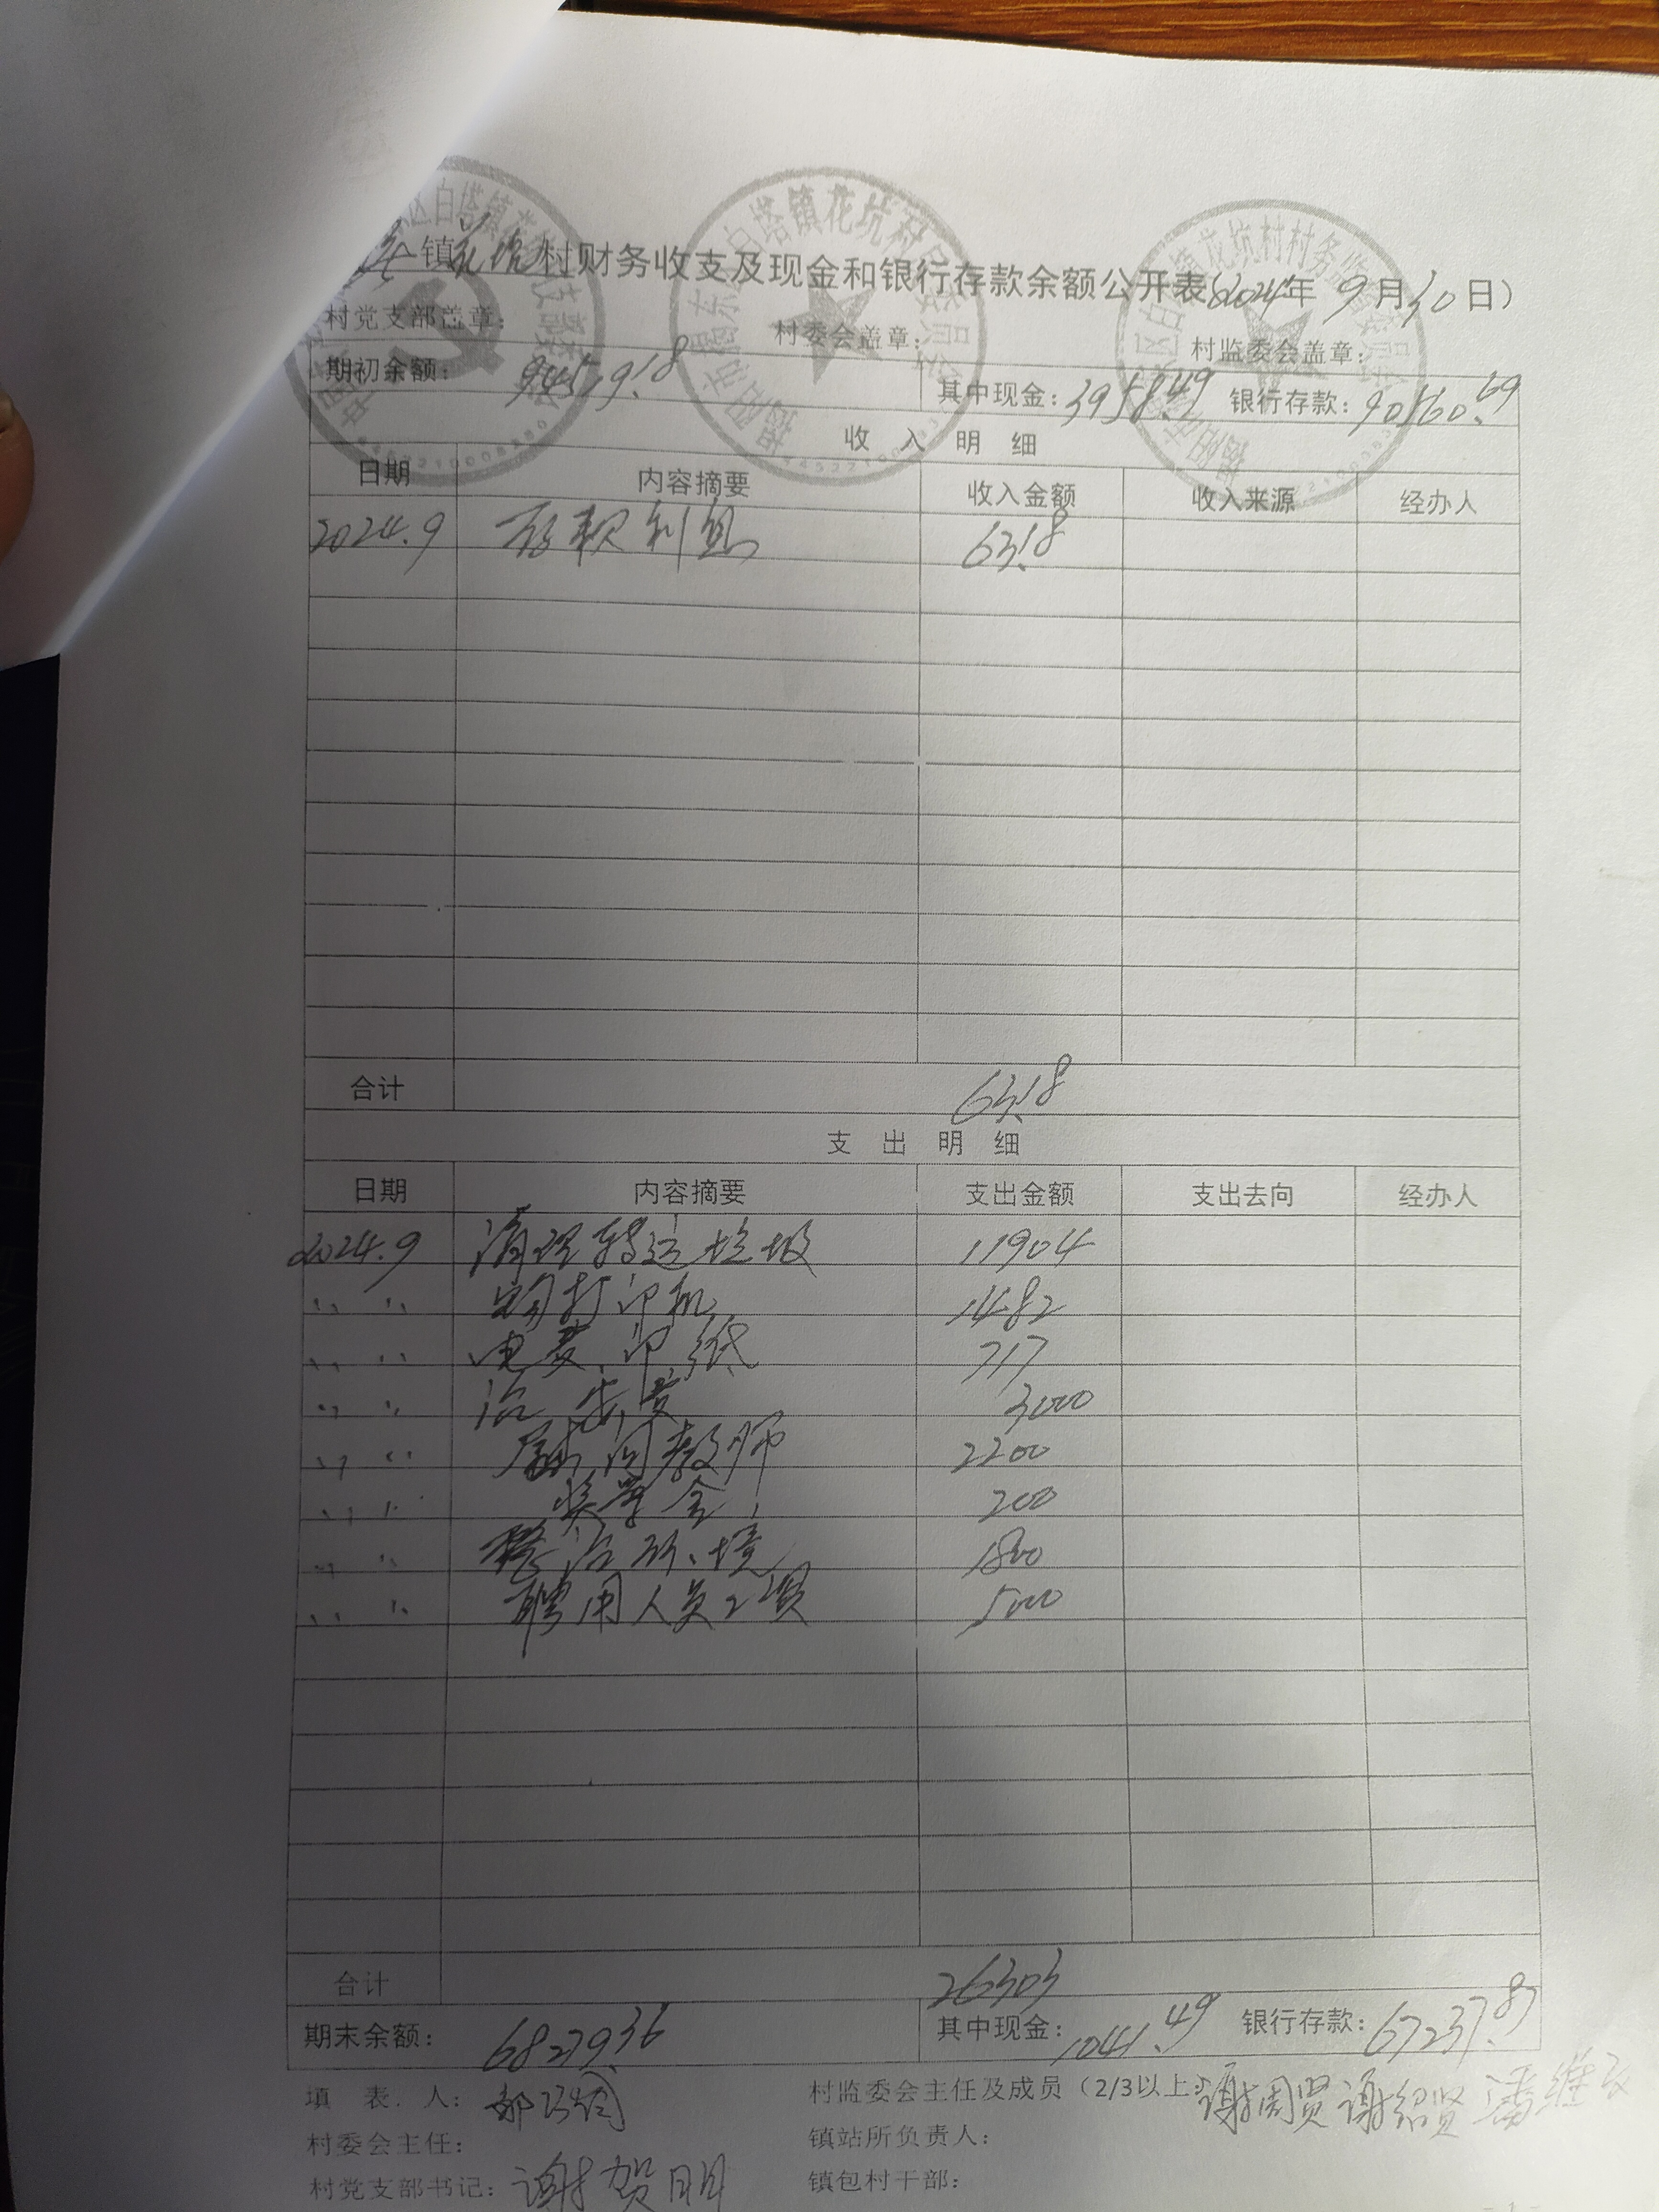 镇花坑村财务收支及现金和银行存款余额公开表(2024年9月30日)
村党支部盖章: 村委会盖章: 村监委会盖章:
期初余额: 94519.18 其中现金: 3958.49 银行存款: 90560.69
收入明细
日期 内容摘要 收入金额 收入来源 经办人
2024.9 存款利息 63.18
合计 63.18
支出明细
日期 内容摘要 支出金额 支出去向 经办人
2024.9 清理转运垃圾 11904
〃 〃 购打印机 1482
〃 〃 电费、印、纸 717
〃 〃 治安费 3000
〃 〃 慰问教师 2200
〃 〃 奖学金 200
〃 〃 整治环境 1800
〃 〃 聘用人员工资 5000
合计 26303
期末余额: 68279.36 其中现金: 1041.49 银行存款: 67237.87
填表人:
村监委会主任及成员(2/3以上): 谢周贤 谢绍贤
村委会主任: 镇站所负责人:
村党支部书记: 谢贺明 镇包村干部:
- 1 -